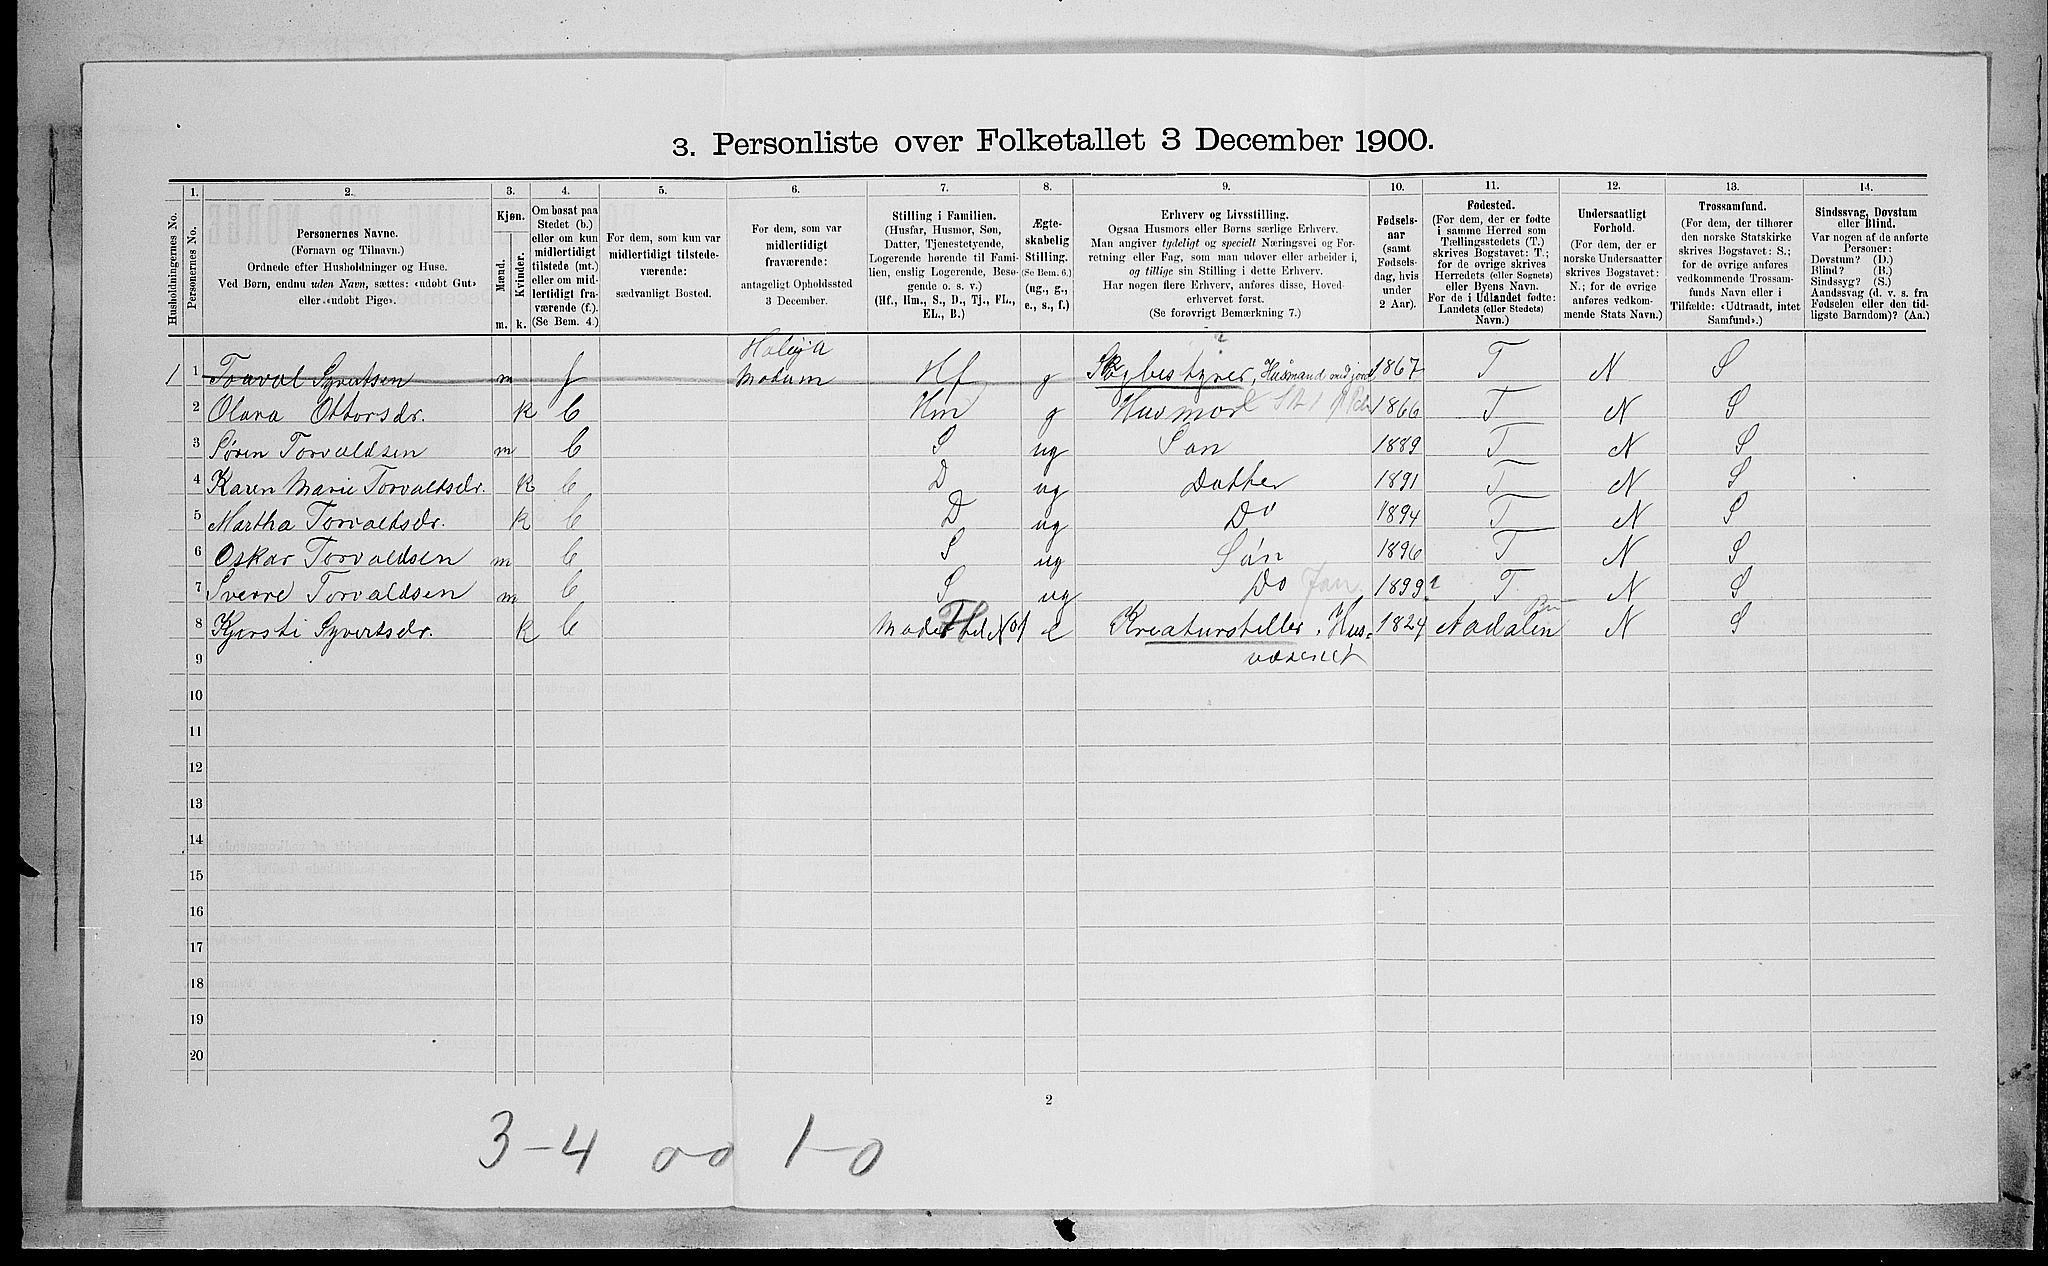 3. Personliste over Folketallet 3 December 1900.
1. 2. 3. 4. 5. 6. 7. 8. 9. 10. 11. 12. 13. 14.
Husholdningernes No.
Personernes No.
Personernes Navne.
(Fornavn og Tilnavn.)
Ordnede efter Husholdninger og Huse.
Ved Børn, endnu uden Navn, sættes: «udøbt Gut»
eller «udøbt Pige».
Kjøn.
Mænd.
Kvinder.
m. k.
Om bosat paa
Stedet (b.)
eller om kun
midlertidigt
tilstede (mt.)
eller om mid-
lertidigt fra-
værende (f.).
(Se Bem. 4.)
For dem, som kun var
midlertidigt tilstede-
værende:
sædvanligt Bosted.
For dem, som var
midlertidigt
fraværende:
antageligt Opholdssted
3 December.
Stilling i Familien.
(Husfar, Husmor, Søn,
Datter, Tjenestetyende,
Logerende hørende til Fami-
lien, enslig Logerende, Besø-
gende o. s. v.)
(Hf., Hm., S., D., Tj., FL.,
EL., B.)
Ægte-
skabelig
Stilling.
(Se Bem. 6.)
(ug., g.,
e., s., f.)
Erhverv og Livsstilling.
Ogsaa Husmors eller Børns særlige Erhverv.
Man angiver tydeligt og specielt Næringsvei og For-
retning eller Fag, som man udøver eller arbeider i,
og tillige sin Stilling i dette Erhverv.
Har nogen flere Erhverv, anføres disse, Hoved-
erhvervet først.
(Se forøvrigt Bemærkning 7.)
Fødsels-
aar
(samt
Fødsels-
dag, hvis
under
2 Aar).
Fødested.
(For dem, der er fødte
i samme Herred som
Tællingsstedets (T.)
skrives Bogstavet: T.;
for de øvrige skrives
Herredets (eller Sognets)
eller Byens Navn.
For de i Udlandet fødte:
Landets (eller Stedets)
Navn.)
Undersaatligt
Forhold.
(For dem, der er
norske Undersaatter
skrives Bogstavet:
N.; for de øvrige
anføres vedkom-
mende Stats Navn.)
Trossamfund.
(For dem, der tilhører
den norske Statskirke
skrives Bogstavet: S.;
for de øvrige anføres
vedkommende Trossam-
funds Navn eller i
Tilfælde: «Udtraadt, intet
Samfund».)
Sindssvag, Døvstum
eller Blind.
Var nogen af de anførte
Personer:
Døvstum? (D.)
Blind? (B.)
Sindssyg? (S.)
Aandssvag (d. v. s. fra
Fødselen eller den tid-
ligste Barndom)? (Aa.)
1 1 Torval Syvertsen m f Modum Hf g Skogbestyrer, Husmand med jord 1867 T N S
2 Olava Ottorsdr. k b Hm g Husmor 1866 T N S
3 Søren Torvaldsen m b S ug Søn 1889 T N S
4 Karen Marie Torvaldsdr. k b D ug Datter 1891 T N S
5 Martha Torvaldsdr. k b D ug Do 1894 T N S
6 Oskar Torvaldsen m b S ug Søn 1896 T N S
7 Sverre Torvaldsen m b S ug Do Jan 1899 ? T N S
8 Kjersti Syvertsdr. k b Moder til No 1 e Kreatursteller, Hus- 1824 Aadalen N S
9 væsenet
10
11
12
13
14
15
16
17
18
19
20
2
3-4 0-0 1-0